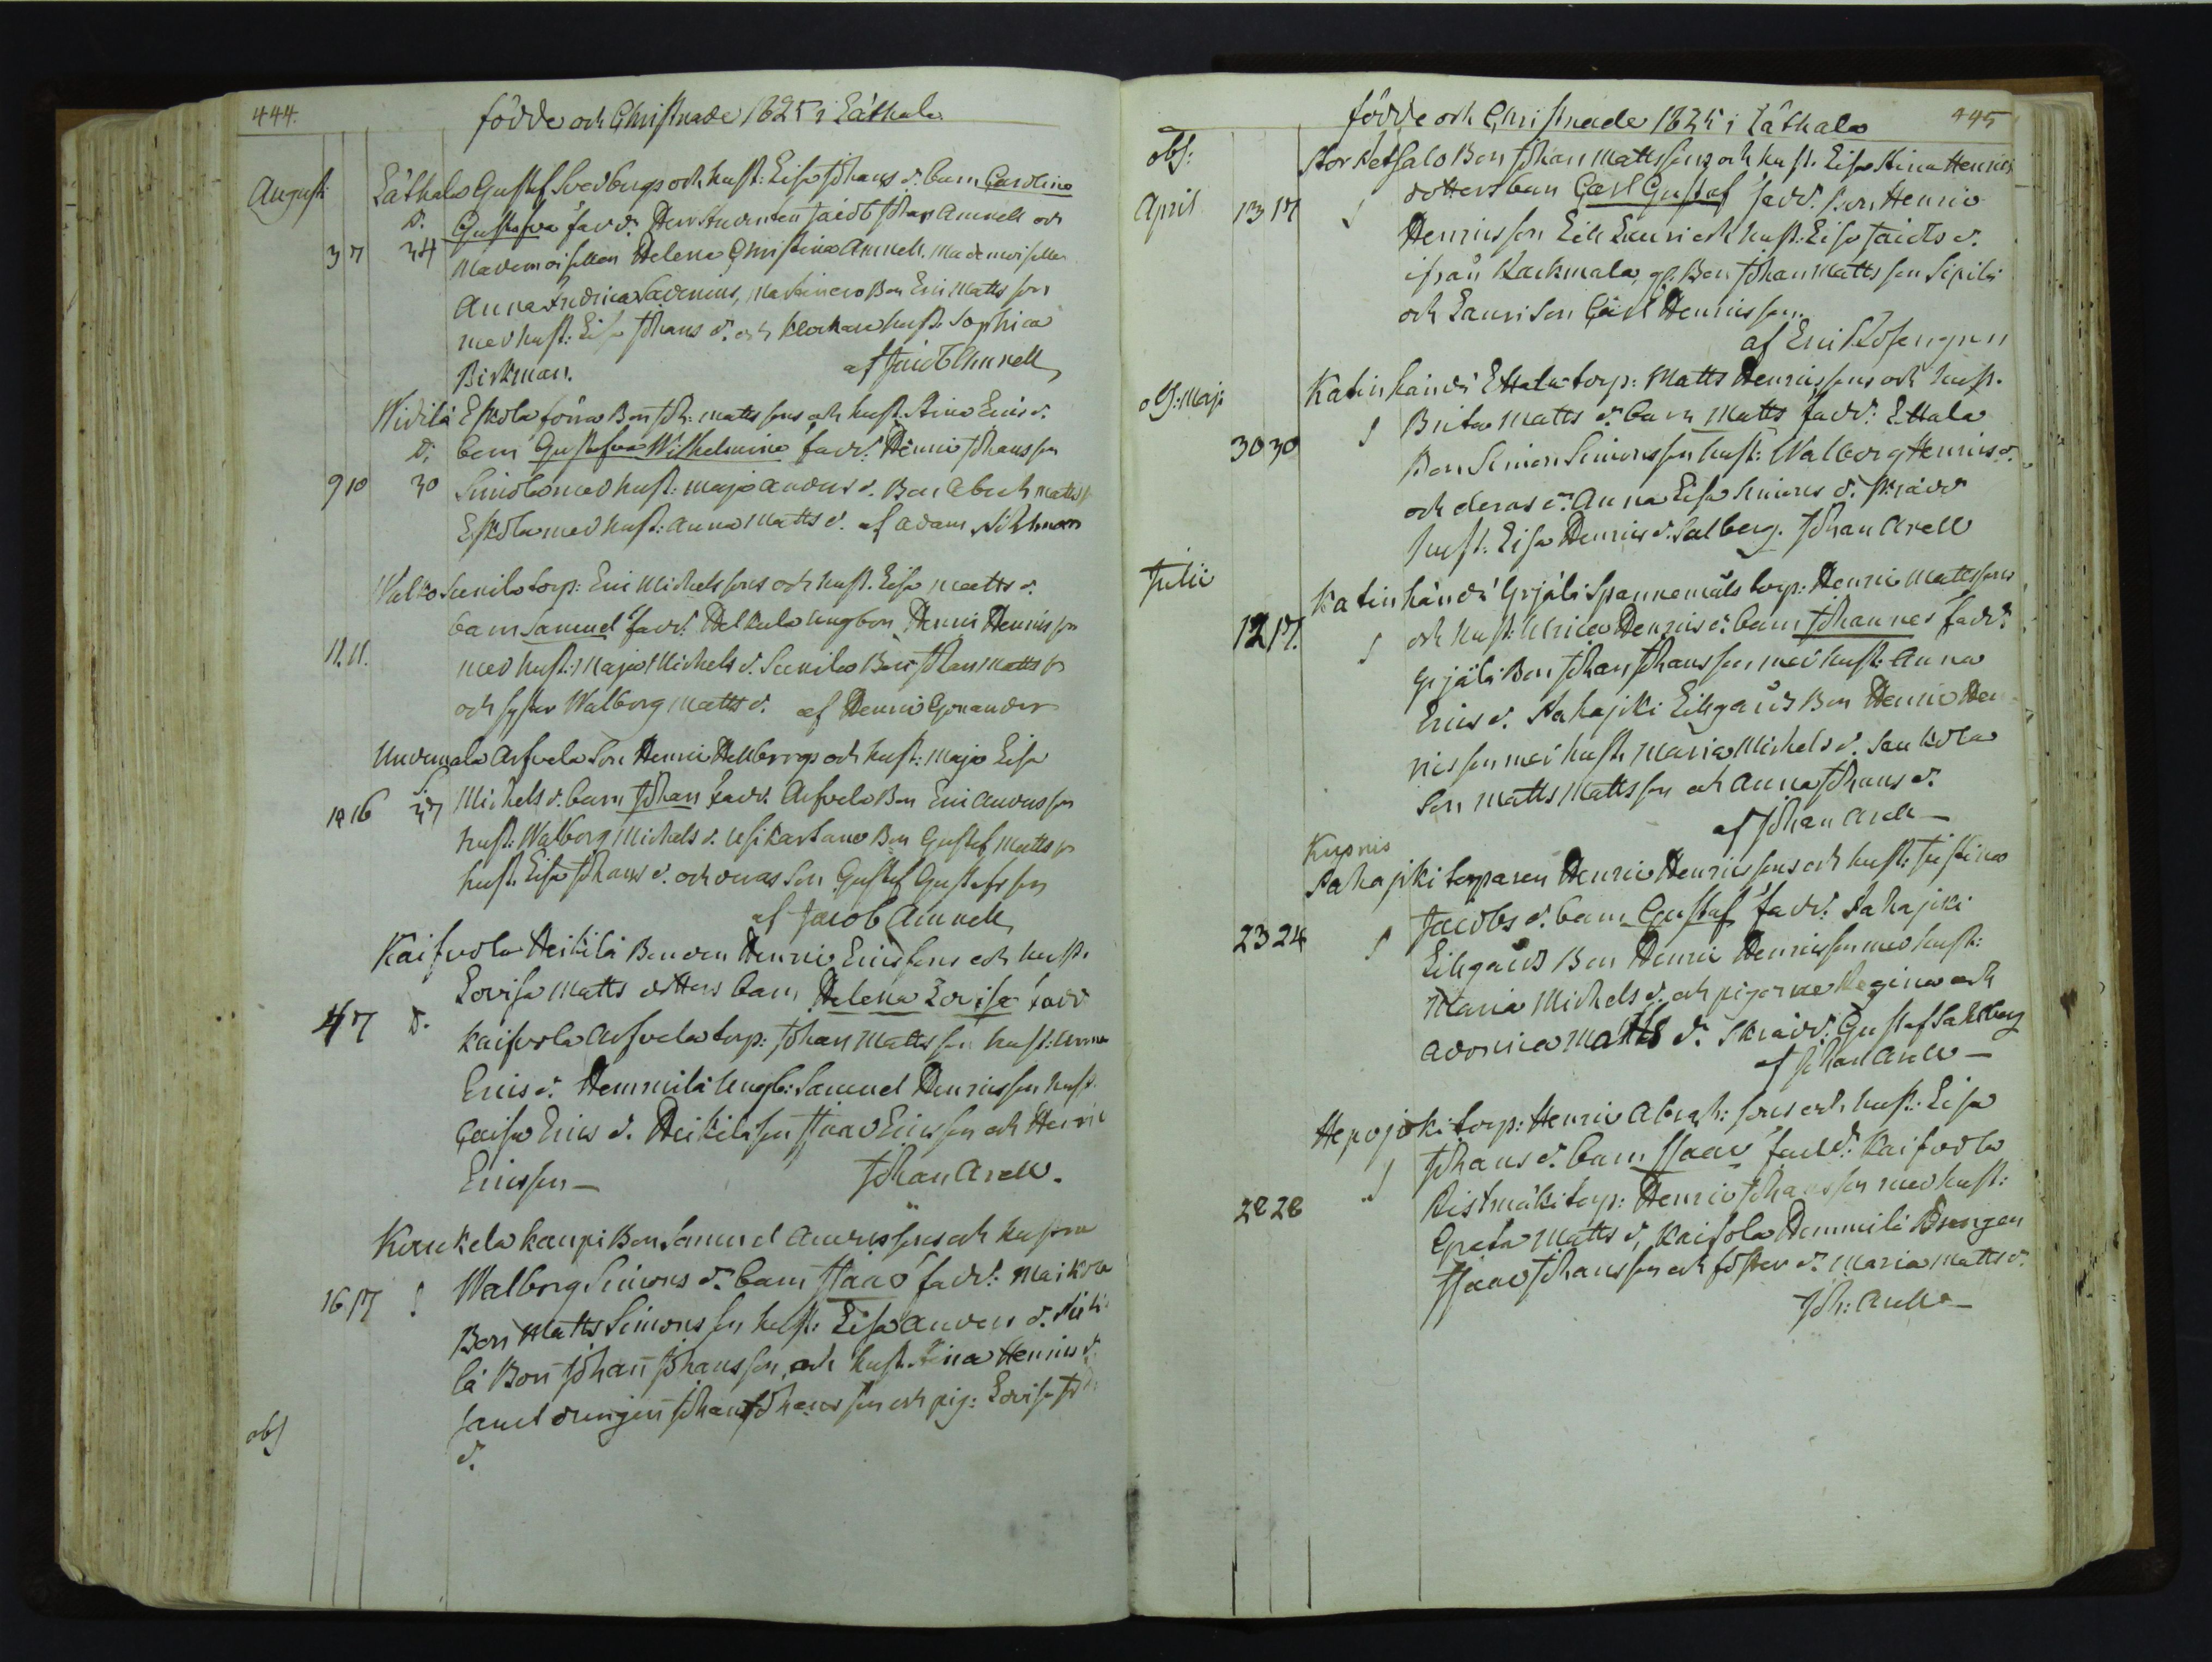 444.
födde och Christnade 1825 i Låthala
Augusti
Låthala Gustaf Svedbergs och hust: Lisa Johans d. barn Carolina
D. Gustafva fadd: Herr Studenten Jacob Johan Amnell och
3 7 34 Mademoisellen Helena Christina Amnell. Mademoisellen
Anna Fredrica Savenius, Bon Eric Matts son
med hust: Lisa Johans d. och Klockare hust. Sophia
Birkman. af Jacob Amnell
Widilä Eskola Bon Joh: Matts sons och hust. Stina Erics d.
D. barn Gustafva Wilhelmina fadd: Henric Johansson
9 10 30 med hust: Maja Anders d. Bon Abrah Matts s
Eskola med hust: Anna Matts d. af Adam
Walko Seunila torp: Eric Michelssons och hust. Lisa Matts d.
barn Samuel fadd: Helkula ungbon Henric Henrics son
11. 11. med hust: Maja Michels d. Seunila Bon Johan Matts s
och syster Walborg Matts d. af Henric
Undemala Arfvela Son Henric Hellbergs och hust: Maja Lisa
S.
14 16 37 Michels d. barn Johan fadd. Arfvela Bon Eric Andersson
hust: Walborg Michels d. Usikartano Bon Gustaf Matts s
hust. Lisa Johans d. och deras Son Gustaf Gustafsson
af Jacob Amnell
Kaifvola Heikilä Bonden Henric Ericssons och hust.
Lovisa Matts dotters barn Helena Lovisa fadd
4 7 D. Kaifvola Arfvela torp: Johan Matts son hust: Anna
Erics d. Hemmilä Ungb: Samuel Henricsson hust
Caisa Erics d. Heikilä son Isaac Ericsson och Henric
Ericsson — Johan Arell.
Kouckela Kaupi Bon Samuel Anderssons och hustru
Walborg Simons d. barn Isaac fadd: Maikola
16 17 S Bon Matts Simonsson hust: Lisa Anders d.
lä Bon Johan Johansson, och hust. Stina Henrics d.
samt drängen Johan Johansson och pig: Lovisa
d.
obs
födde och Christnade 1825 i Låthala
445
obs:
Storketsalo Bon Johan Mattssons och hust. Lisa Stina Henrics
April 13 17 S dotters barn Carl Gustaf fadd: Bon Henric
Henricsson Lill Lauri och hust: Lisa Jacobs d.
ifrån Karkmala, Bon Johan Mattsson Sipilä
och Lauri Son Carl Henricsson.
af Eric Rosengren
obs: Maji
Katinhändä Ettala torp: Matts Henricssons och hust.
30 30 S Brita Matts d. barn Matts fadd: Ettala
Bon Simon Simonsson hust: Walborg Henrics d.
och deras d. Anna Lisa Simons d.
hust: Lisa Henrics d. Salberg. Johan Arell
Julii
Katinhändä Yrjälä Spannemåls torp: Henric Mattssons
12 17. S och hust: Ulrica Henrics d. barn Johannes fadd:
Yrjälä Bon Johan Johansson med hust: Anna
Erics d. Rahajoki Lillgård Bon Henric Hen
ricsson med hust. Maria Michels d. Saukola
Son Matts Mattsson och Anna Johans d.
af Johan Arell —
Kupnis
Rahajoki torparen Henric Henricssons och hust: Justina
23 24 S Jacobs d. barn Gustaf fadd: Rahajoki
Lillgård Bon Henric Henricsson med hust:
Maria Michels d. och pigorne Regina och
Matts d. Skrädd. Gustaf Sahlberg
af Johan Arell —
Hepojoki torp: Henric Abrah: sons och hust: Lisa
S Johans d. barn Isaac fadd: Kaifvola
28 28 Ristmäki torp: Henric Johansson med hust:
Greta Matts d, Kaifola Hemmilä Drengen
Isaac Johansson och foster d. Maria Matts d.
Joh: Arell —